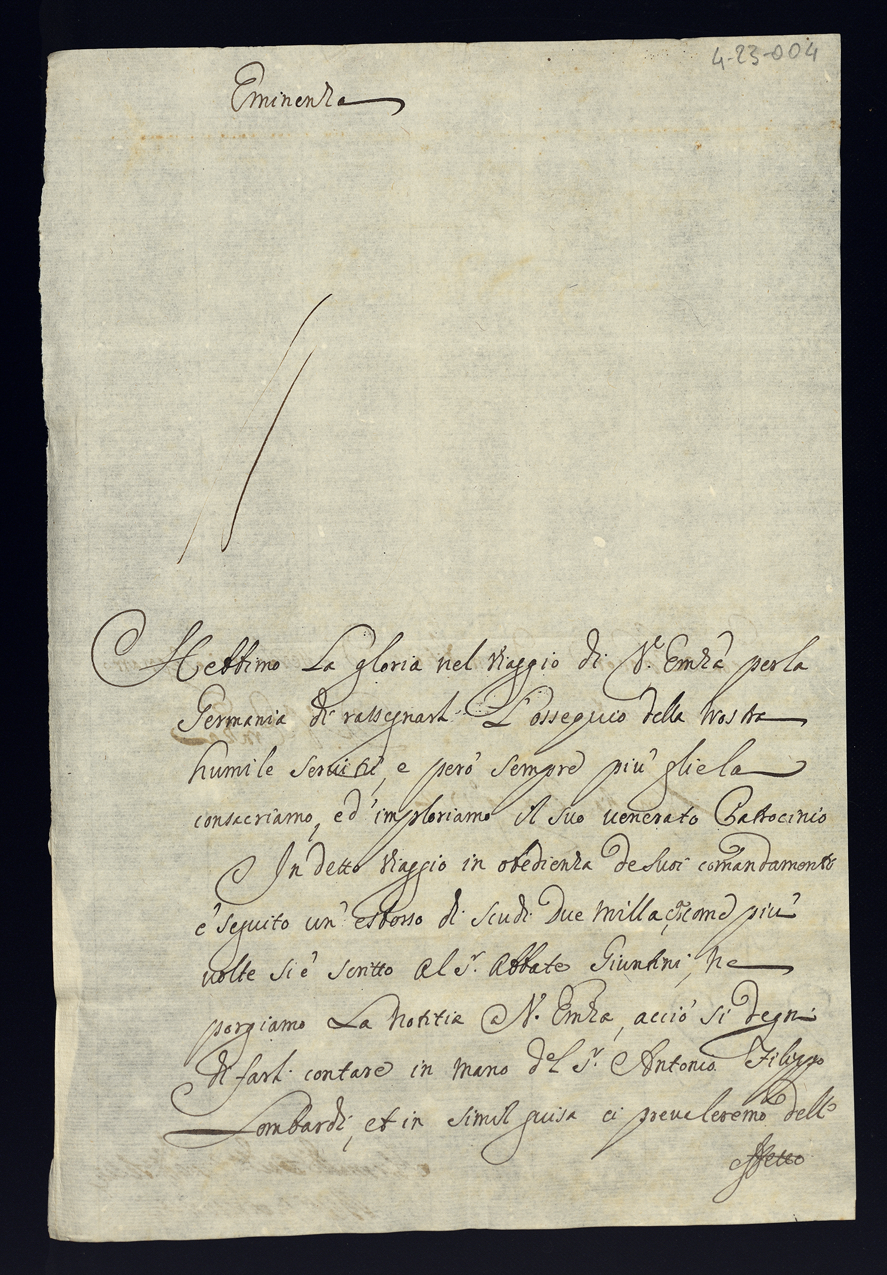 4-23-004
Eminenza
Hebbimo La gloria nel viaggio di V.ª Emza per la
Germania di rassegnarli L'ossequio della nostra
humile servitù, e però sempre più gliela
consacriamo, ed'imploriamo il suo venerato Patrocinio
In detto viaggio in obedienza de suoi comandamenti
è seguito un' esborso di scudi Due milla, come più
volte si è scritto al Sr. Abbate Giuntini, ne
porgiamo La notitia a V. Emza, acciò si degni
di farli contare in mano del Sr. Antonio Filippo
Lombardi, et in simil guisa ci prevaleremo dell
effetto